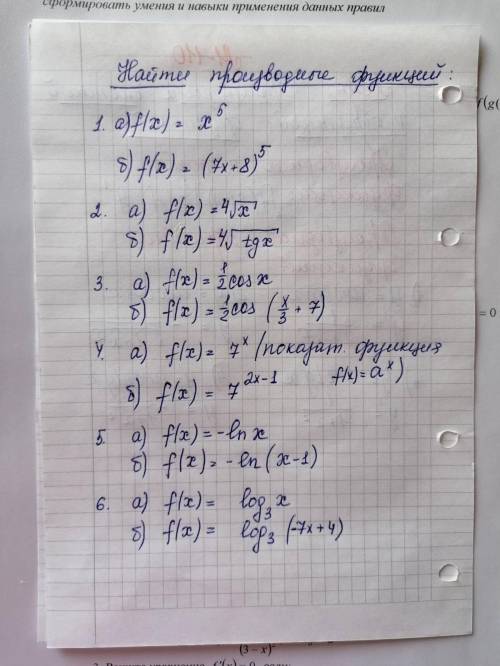 сформировать умения и навыки применения данных правил
Найти производные функций:
f(g(
1. а) f(x) = x⁵
б) f(x) = (7x+8)⁵
2. а) f(x) = 4√x
б) f(x) = 4√tgx
3. а) f(x) = 1/2 cos x
б) f(x) = 1/2 cos (x/3 + 7)
= 0
4. а) f(x) = 7ˣ (показат. функция
f(x) = aˣ)
б) f(x) = 7²ˣ⁻¹
5. а) f(x) = -ln x
б) f(x) = -ln (x-1)
6. а) f(x) = log₃ x
б) f(x) = log₃ (-7x+4)
(3 – x)²